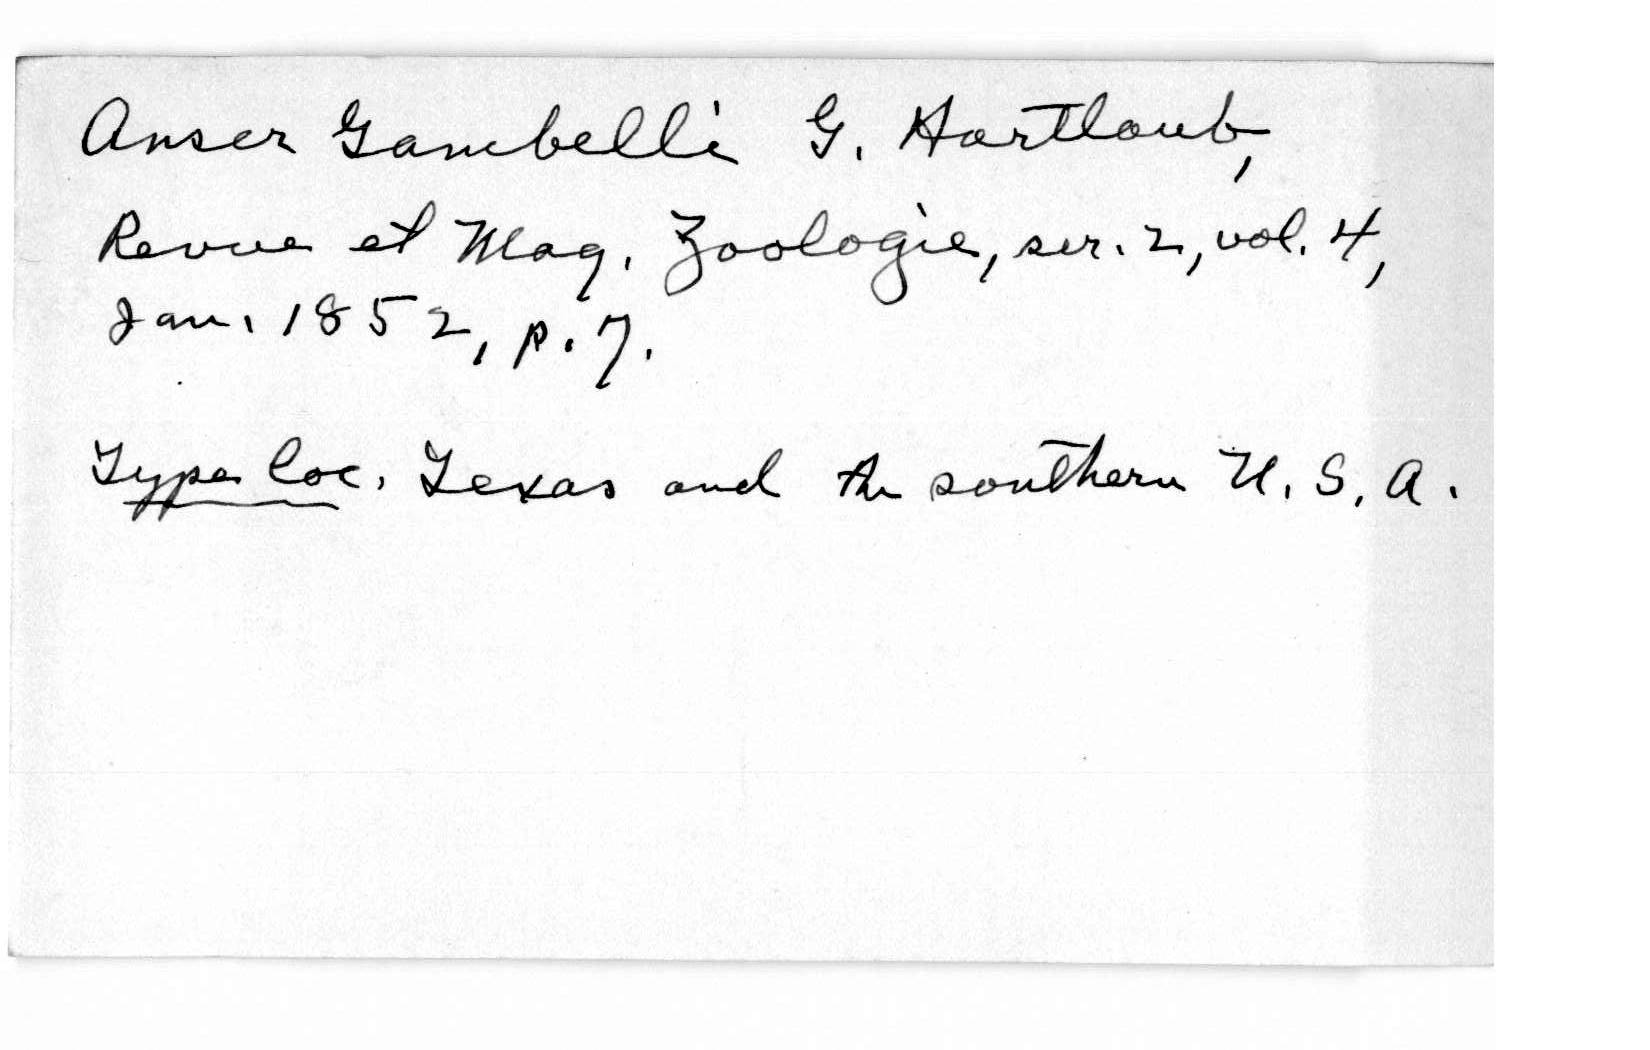 Anser Gambelli G. Hartlaub,
Revue et Mag. Zoologie, ser. 2, vol. 4,
Jan. 1852, p. 7.
Type loc. Texas and the southern U. S. A.